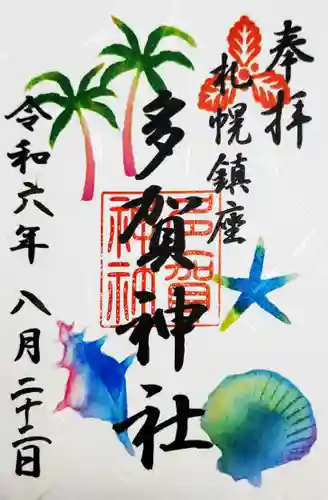 奉拝
札幌鎮座
多賀神社
多賀神社
令和六年八月二十二日